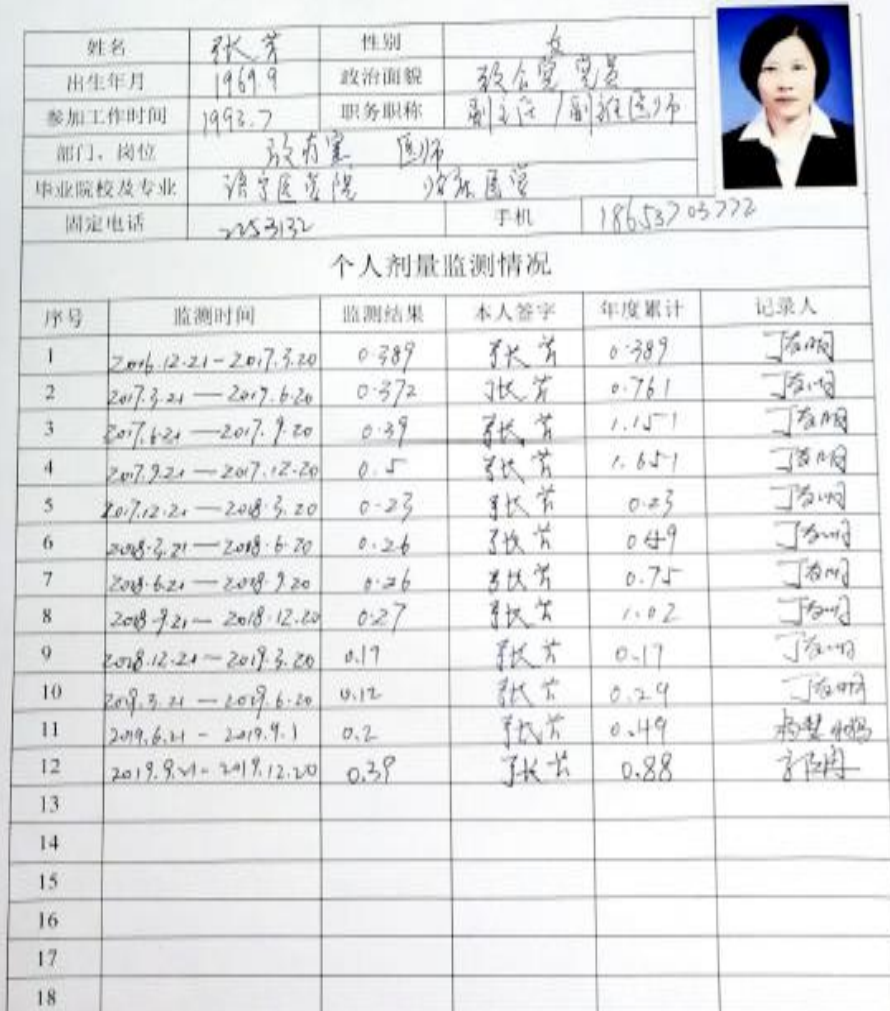 姓名 张芳 性别 女
出生年月 1969.9 政治面貌 党员
参加工作时间 1993.7 职务职称 副主任/副主任医师
部门、岗位 放疗室 医师
毕业院校及专业 济宁医学院 临床医学
固定电话 2253132 手机 18653703772
个人剂量监测情况
序号 监测时间 监测结果 本人签字 年度累计 记录人
1 2016.12.21-2017.3.20 0.389 张芳 0.389
2 2017.3.21—2017.6.20 0.372 张芳 0.761
3 2017.6.21—2017.9.20 0.39 张芳 1.151
4 2017.9.21—2017.12.20 0.5 张芳 1.651
5 2017.12.21—2018.3.20 0.23 张芳 0.23
6 2018.3.21—2018.6.20 0.26 张芳 0.49
7 2018.6.21—2018.9.20 0.26 张芳 0.75
8 2018.9.21—2018.12.20 0.27 张芳 1.02
9 2018.12.21—2019.3.20 0.17 张芳 0.17
10 2019.3.21—2019.6.20 0.12 张芳 0.29
11 2019.6.21-2019.9.1 0.2 张芳 0.49
12 2019.9.21-2019.12.20 0.39 张芳 0.88
13
14
15
16
17
18